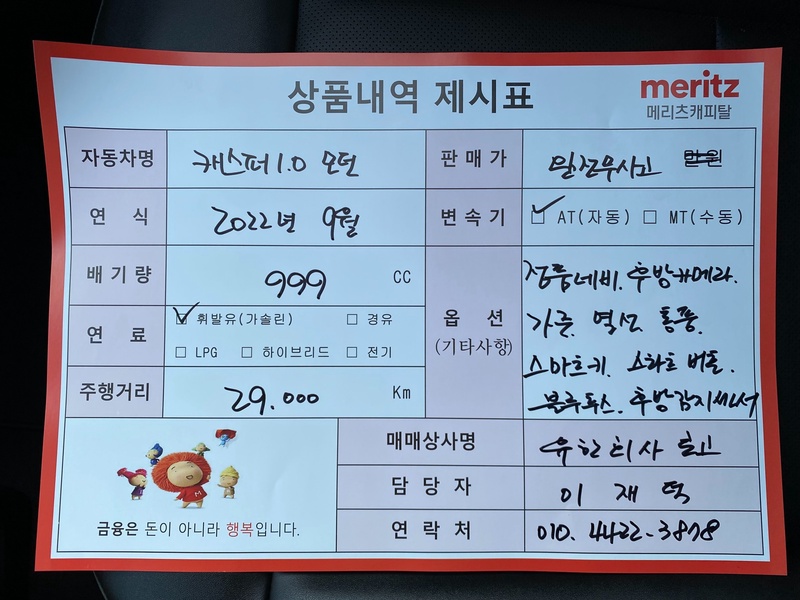 상품내역 제시표
meritz
메리츠캐피탈
자동차명 캐스퍼 1.0 모던
판매가 완전무사고 만원
연식 2022년 9월
변속기 ☑ AT(자동) □ MT(수동)
배기량 999 CC
옵션
(기타사항)
정품네비. 후방카메라.
가죽 열선 통풍.
스마트키. 스타트 버튼.
블루투스. 후방감지센서
연료 ☑ 휘발유(가솔린) □ 경유
□ LPG □ 하이브리드 □ 전기
주행거리 29.000 Km
금융은 돈이 아니라 행복입니다.
매매상사명 유한회사
담당자 이재덕
연락처 010. 4422-3878